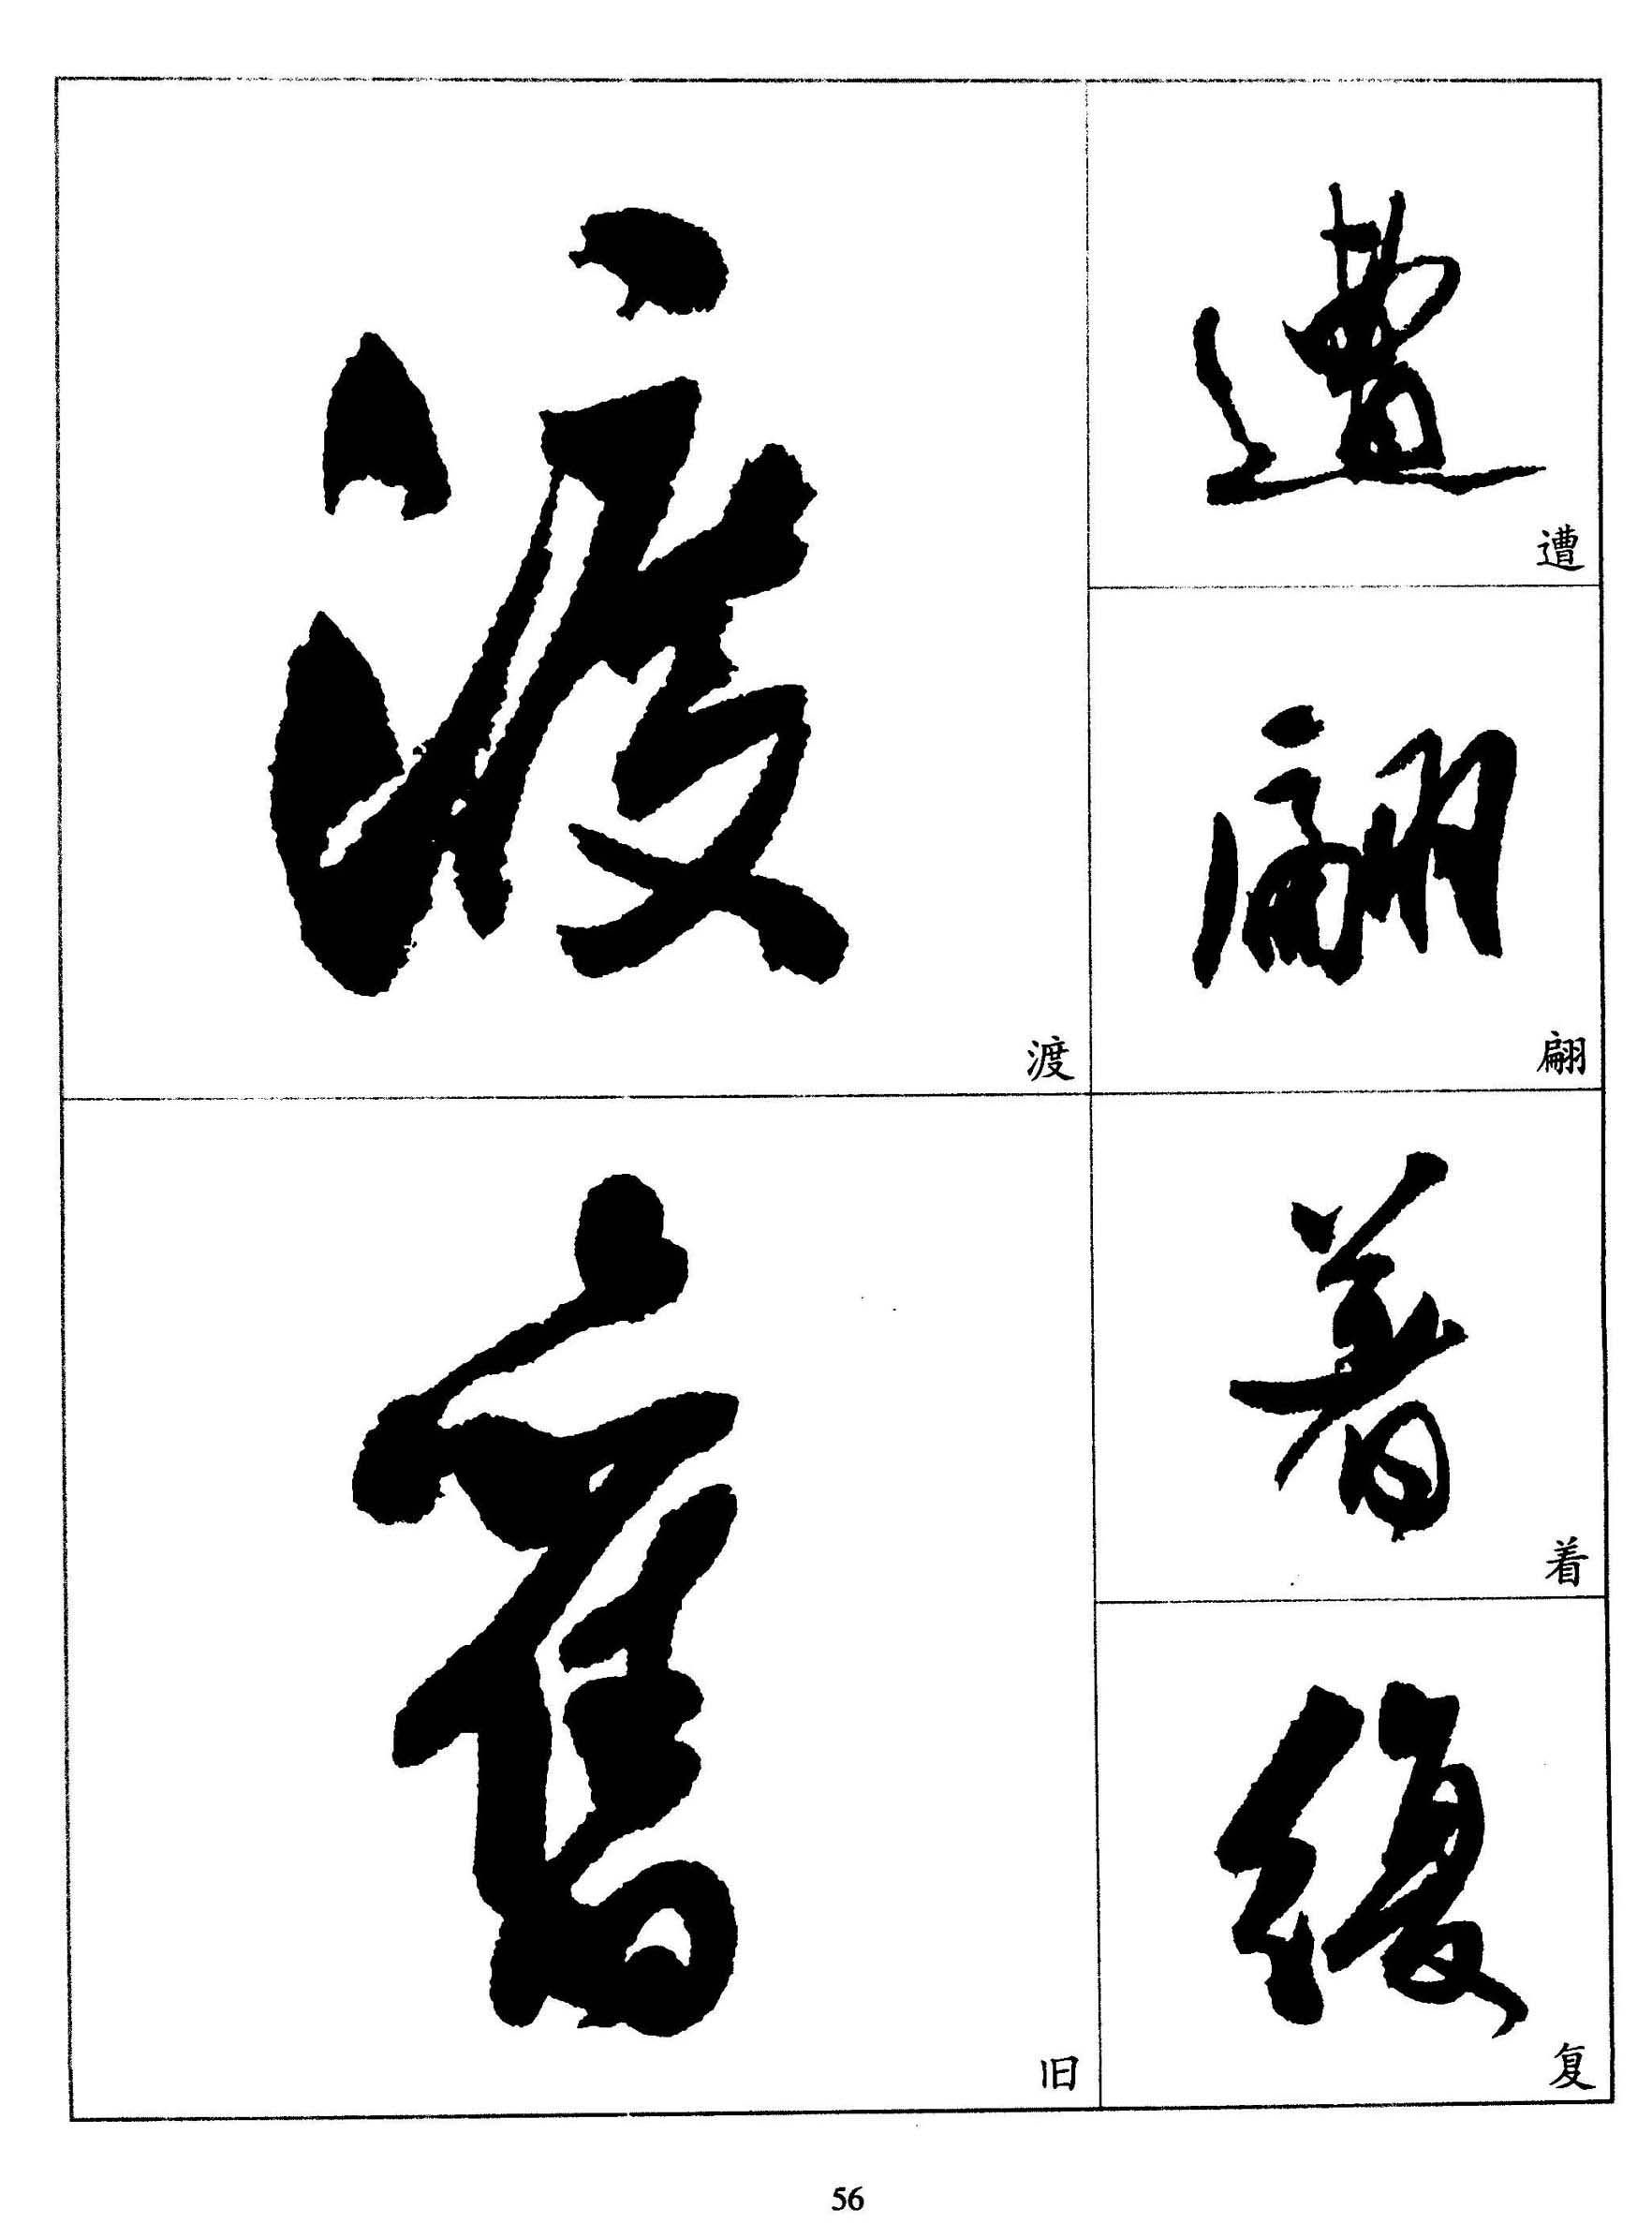 遭
遭
翩
翩
着
着
復
复
渡
渡
舊
旧
56